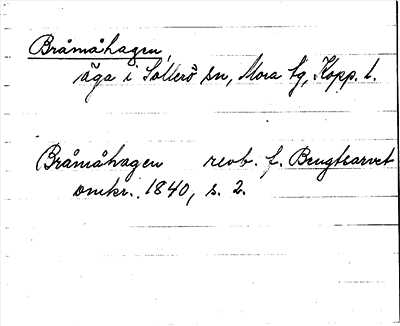 Bråmåhagen,
äga i Sollerö sn, Mora tg, Kopp. l.
Bråmåhagen revb. f. Bengtsarvet
omkr. 1840, s. 2.